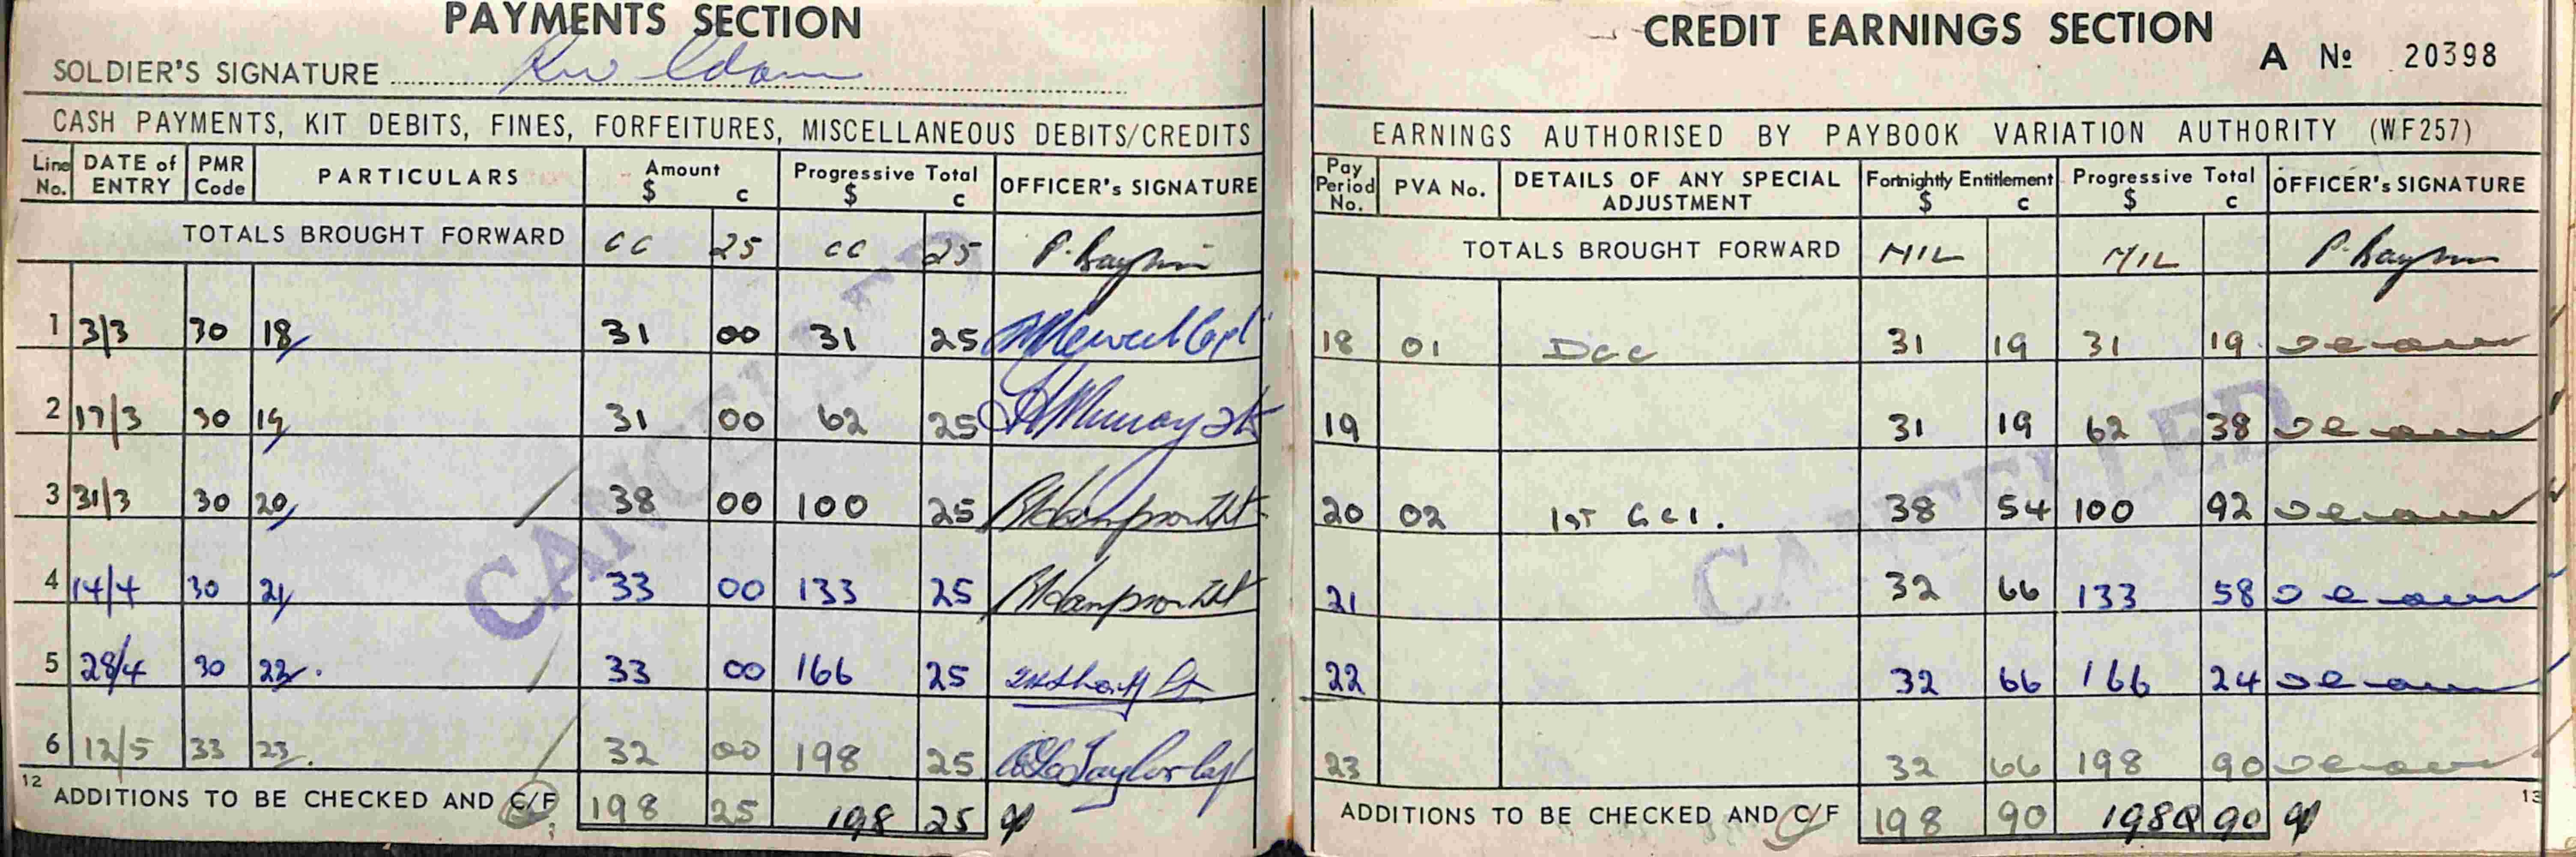 PAYMENTS SECTION
SOLDIER'S SIGNATURE
CASH PAYMENTS, KIT DEBITS, FINES, FORFEITURES, MISCELLANEOUS DEBITS/CREDITS
Line No. DATE of ENTRY PMR Code PARTICULARS Amount $ c Progressive Total $ c OFFICER's SIGNATURE
TOTALS BROUGHT FORWARD CC 25 CC 25
1 3/3 30 18 31 00 31 25
2 17/3 30 19 31 00 62 25 Murray
3 31/3 30 20 38 00 100 25
4 14/4 30 21 33 00 133 25
5 28/4 30 22 33 00 166 25
6 12/5 33 23 32 00 198 25 Taylor
12 ADDITIONS TO BE CHECKED AND C/F 198 25 198 25
CANCELLED
CREDIT EARNINGS SECTION
A No 20398
EARNINGS AUTHORISED BY PAYBOOK VARIATION AUTHORITY (WF257)
Pay Period No. PVA No. DETAILS OF ANY SPECIAL ADJUSTMENT Fortnightly Entitlement $ c Progressive Total $ c OFFICER's SIGNATURE
TOTALS BROUGHT FORWARD NIL NIL
18 01 31 19 31 19
19 31 19 62 38
20 02 1ST 38 54 100 92
21 32 66 133 58
22 32 66 166 24
23 32 66 198 90
ADDITIONS TO BE CHECKED AND C/F 198 90 198 90
13
CANCELLED